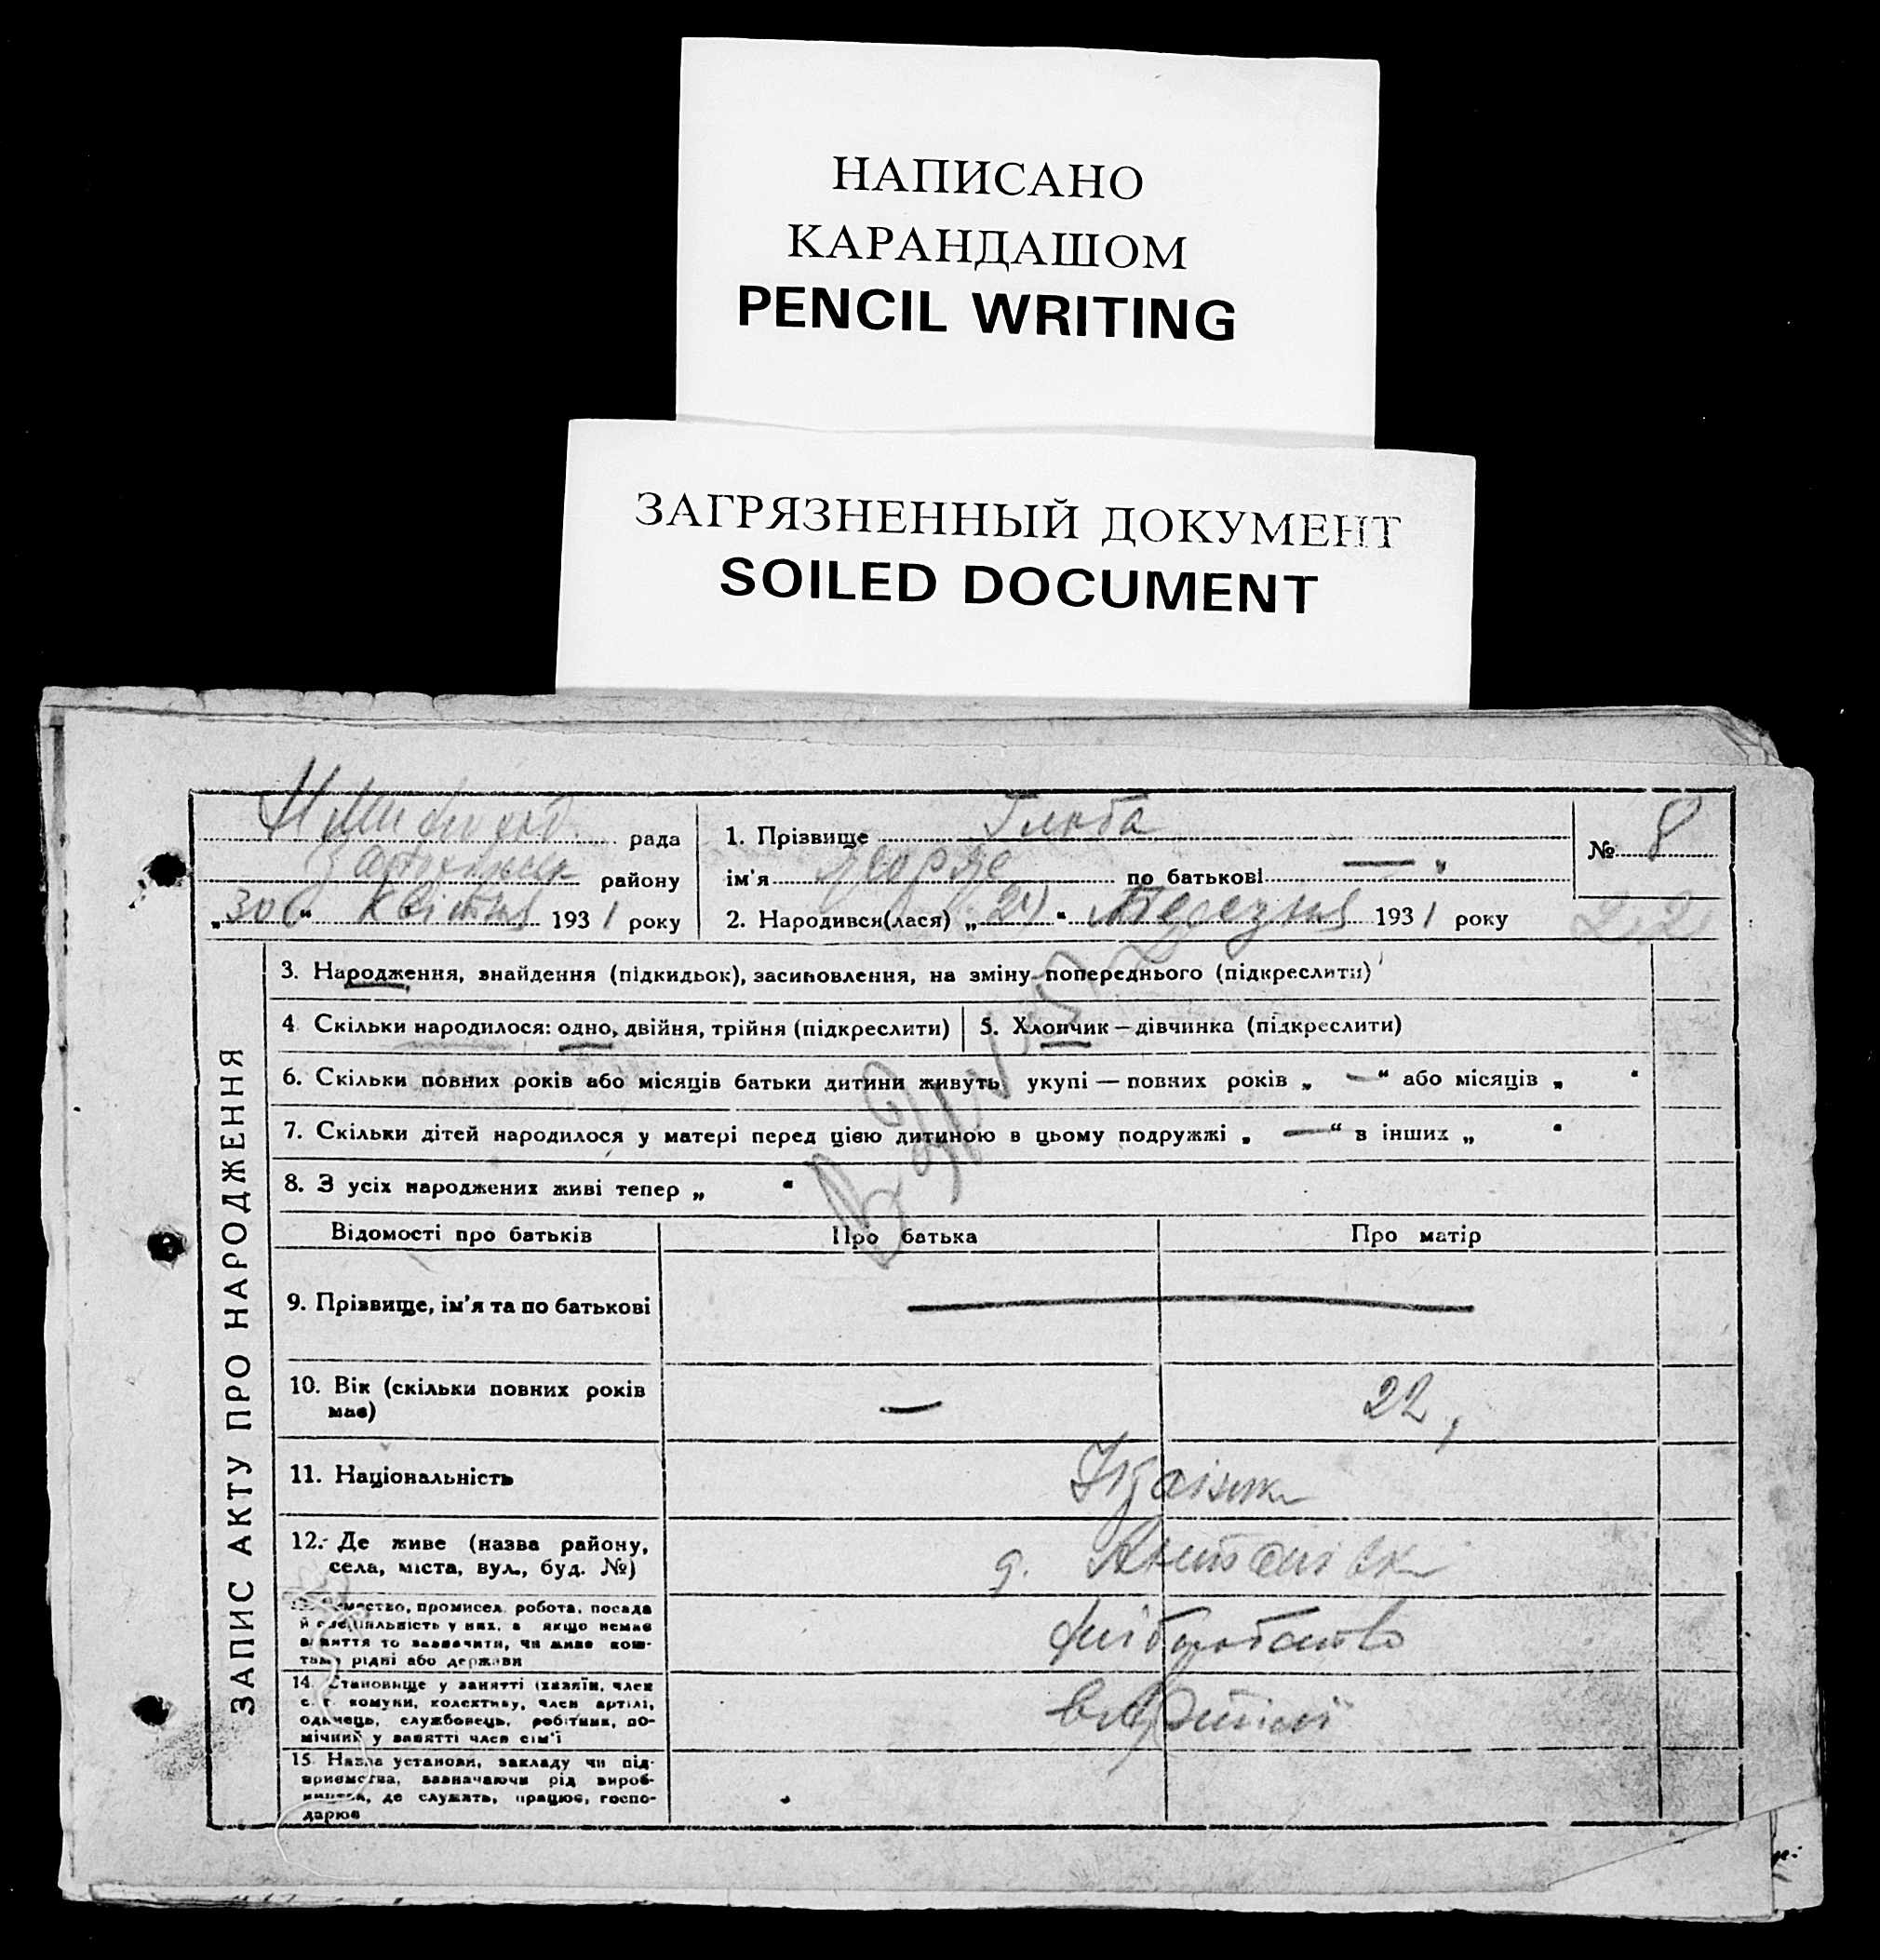 НАПИСАНО
КАРАНДАШОМ
PENCIL WRITING
ЗАГРЯЗНЕННЫЙ ДОКУМЕНТ
SOILED DOCUMENT
рада
району
„30“ Квітня 1931 року
1. Прізвище
ім'я по батькові — “
2. Народився(лася) „24“ Березня 1931 року
№ 8
22
ЗАПИС АКТУ ПРО НАРОДЖЕННЯ
3. Народження, знайдення (підкидьок), засиновлення, на зміну попереднього (підкреслити)
4. Скільки народилося: одно, двійня, трійня (підкреслити)
5. Хлопчик — дівчинка (підкреслити)
6. Скільки повних років або місяців батьки дитини живуть укупі — повних років „ — “ або місяців „ “
7. Скільки дітей народилося у матері перед цією дитиною в цьому подружжі „ — “ в інших „ “
8. З усіх народжених живі тепер „ “
Відомості про батьків
Про батька
Про матір
9. Прізвище, ім'я та по батькові
10. Вік (скільки повних років
має)
—
22,
11. Національність
12. Де живе (назва району,
села, міста, вул., буд. №)
промисел, робота, посада
й спеціальність у них, а якщо немає
заняття то зазначити, чи живе кош-
тами рідні або держави
14. Становище у занятті (хазяїн, член
с. г. комуни, колективу, член артілі,
одинець, службовець, робітник, по-
мічний у занятті член сім'ї
в Артілі
15. Назва установи, закладу чи під-
приємства, зазначаючи рід вироб-
ництва, де служить, працює, госпо-
дарює